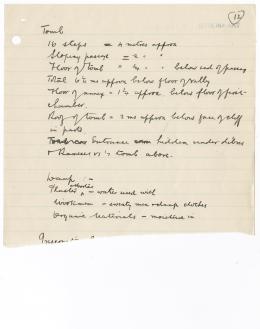 12
Tomb
16 steps = 4 metres approx
Sloping passage = 2 " "
Floor of tomb = " " below end of passage
6½ ms approx below floor of valley
Floor of annex = 1¼ approx. below floor of
chamber.
Roof of tomb = 2 ms approx below face of cliff
in parts
Entrance hidden under debris
+ Rameses VI's tomb above.
Damp :-
Plaster, - water used with
Workmen - sweaty men + damp clothes
Organic materials - moisture in